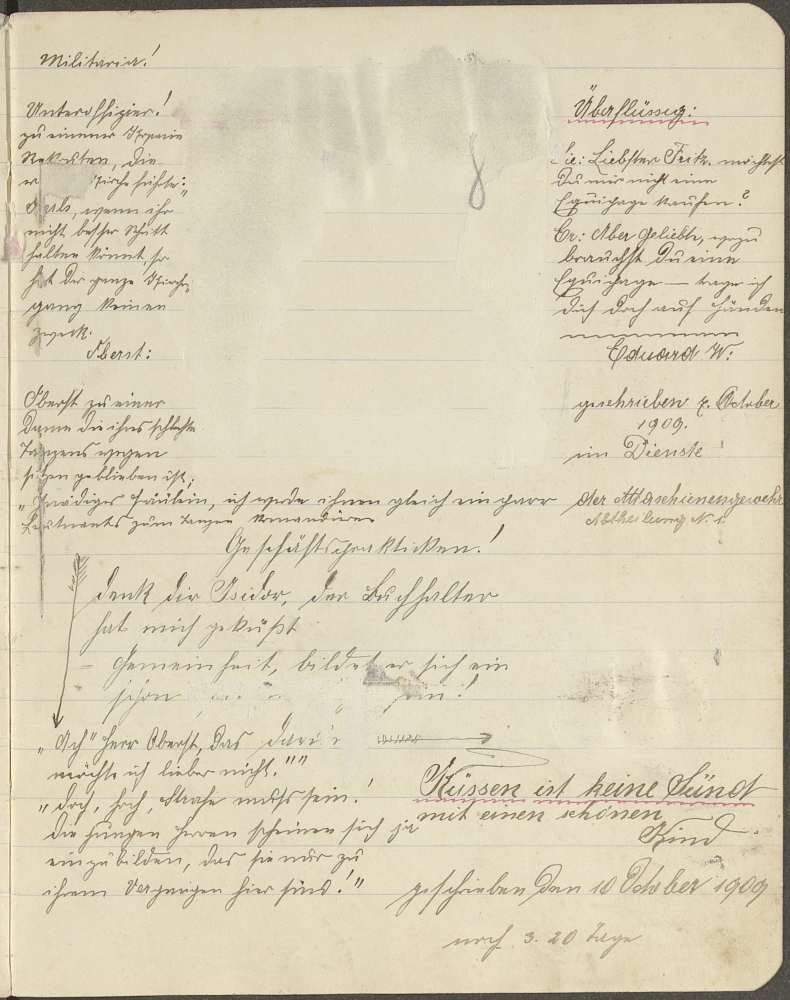 Militaria!
Unteroffizier!
zu einener Kompanie
Rekruten, die
er
Kerls, wenn ihr
nicht besser Schritt
halten könnt, so
hat der ganze Kirch-
gang keinen
Zweck.
Oberst:
Oberst zu einer
Dame die ihres schlechten
Tanzens wegen
sitzen geblieben ist;
"Gnädiges Fräulein, ich werde ihnen gleich ein paar
Leutnants zum tanzen komandieren
Überflüssig:
Sie: Liebster Fritz. möchtest
Du mir nicht eine
Equipage kaufen?
Er: Aber Geliebte, wozu
brauchst Du eine
Equipage — trage ich
dich doch auf Händen
Eduard W:
geschrieben 7. October
1909.
im Dienste
der Maschienengewehr
Abtheilung N. 1.
Geschäftspraktiken!
Denk dir Isidor, der Buchhalter
hat mich geküßt
- Gemeinheit, bildet er sich ein
schon
sein!
"Ach" Herr Oberst, das
möchte ich lieber nicht.""
"doch, doch, Strafe muß sein!
die jungen Herren scheinen sich ja
einzubilden, das sie nur zu
ihrem Vergnügen hier sind!"
Küssen ist keine Sünd
mit einen schönen
Kind.
geschrieben den 10 October 1909
noch 3. 20 Tage